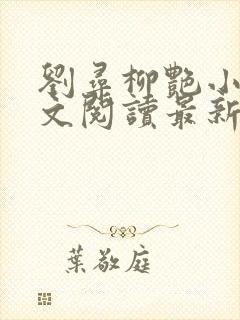 劉尋柳艷小
文閱讀最新
葉敬庭